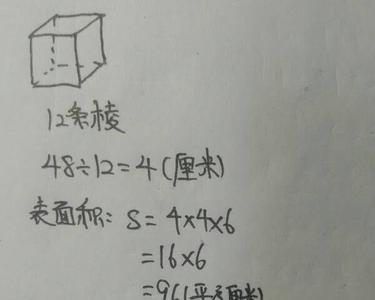 12条棱
48÷12=4(厘米)
表面积: S= 4×4×6
=16×6
=96(平方厘米)